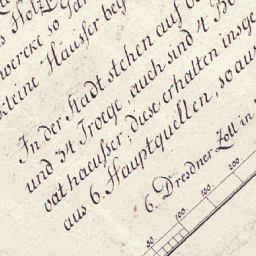 s Holz
wercke so
kleine Häusser bey
In der Stadt stehen auf
und 34 Troege, auch sind 4
vat haeusser; diese erhalten
aus 6. Hauptquellen, so aus
6. Dresdner Zoll in
50. 100. 100. 200.